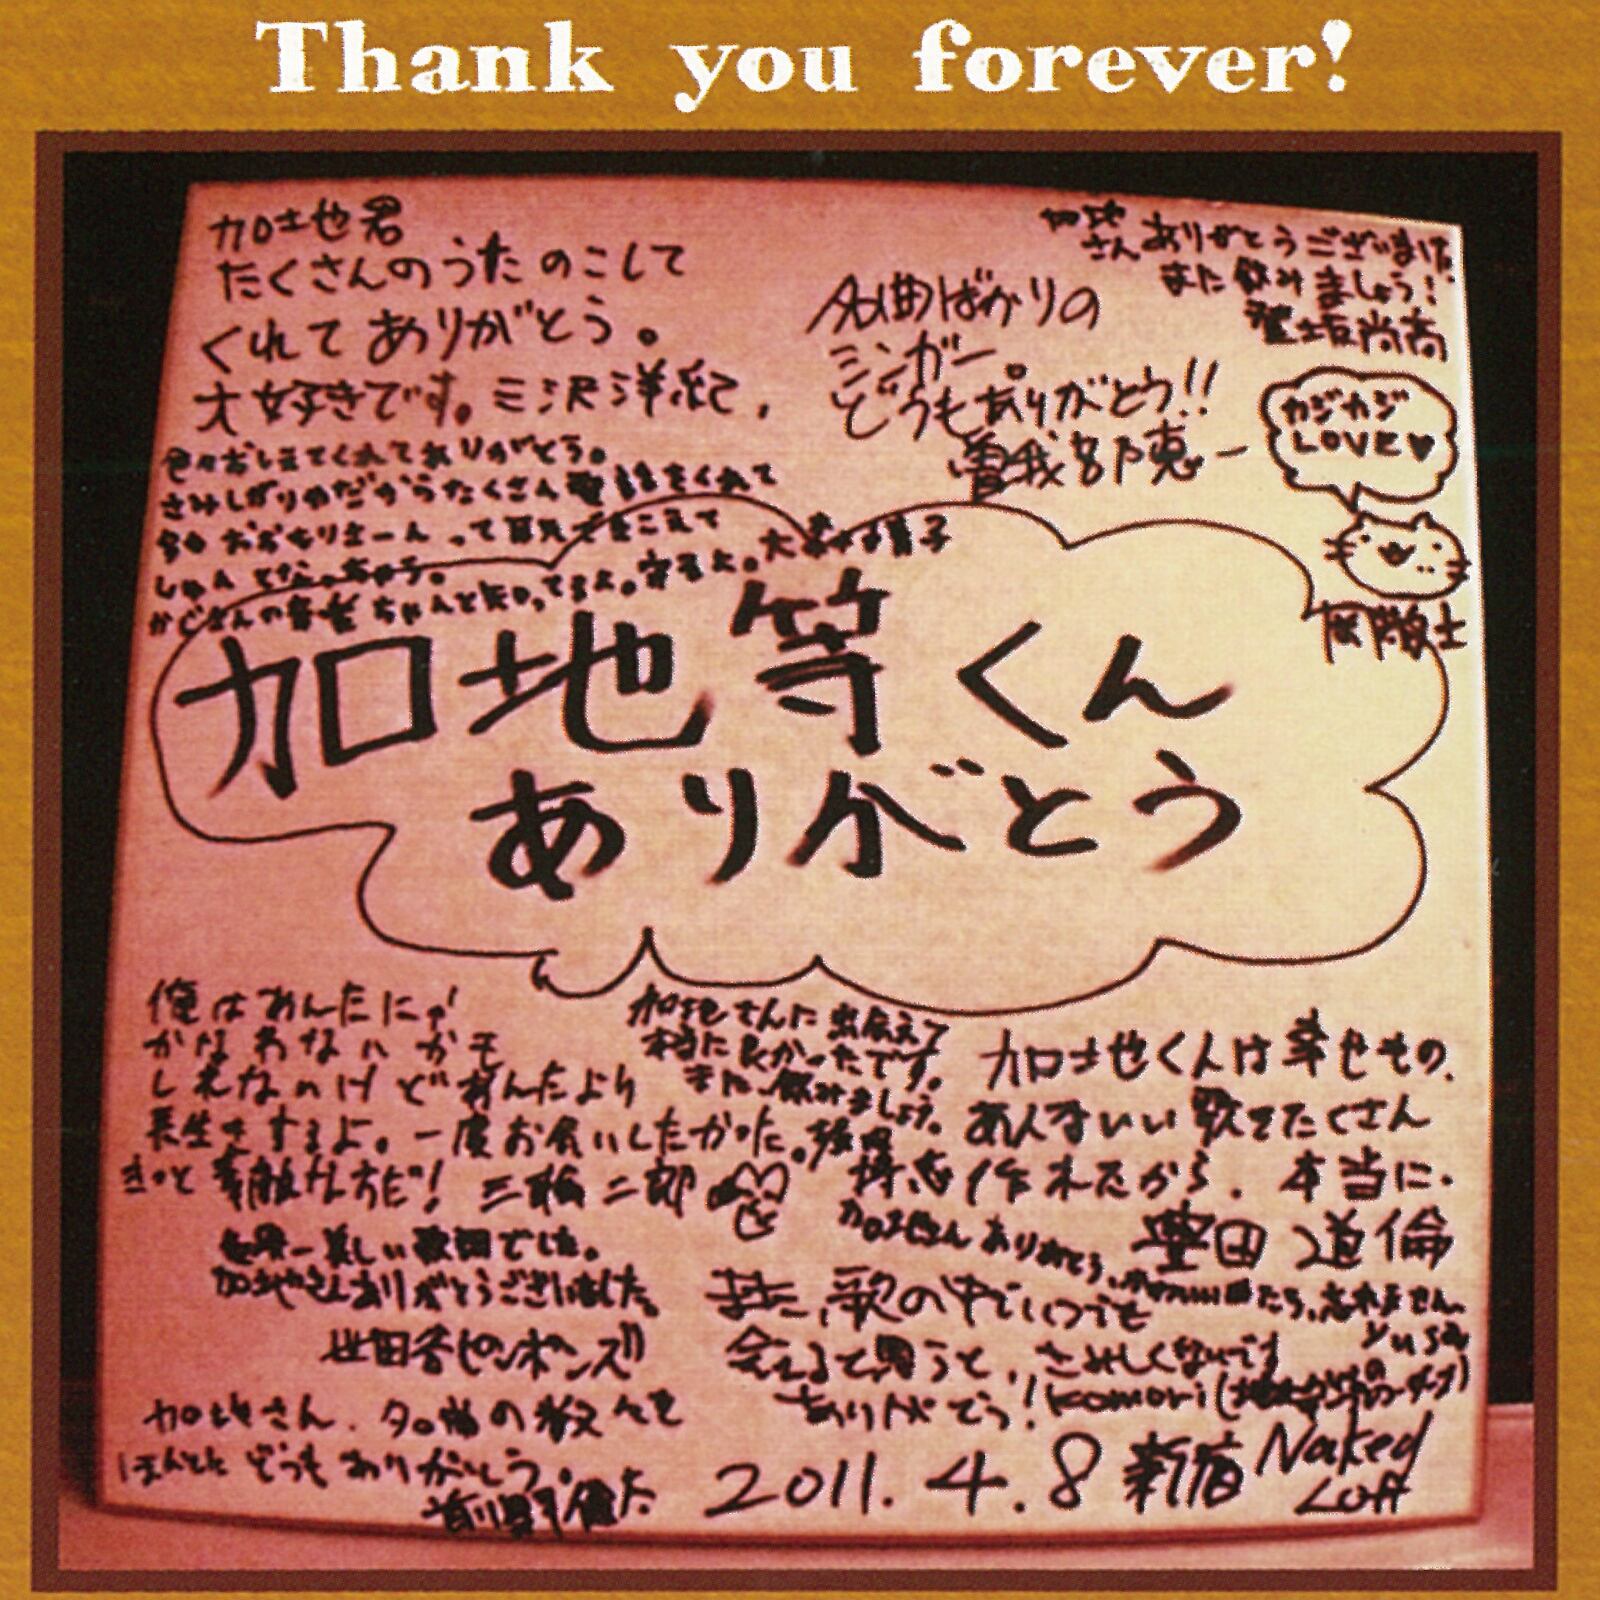 Thank you forever!
加地君
たくさんのうた のこして
くれて ありがとう。
大好きです。三沢洋紀
加地
さん ありがとうございました
また飲みましょう！
名曲ばかりの
シンガー。
どうもありがとう!!
曽我部恵一
カジカジ
LOVE♥
色々おしえてくれてありがとう。
さみしがりやだからたくさん電話をくれて
しゅんとなっちゃう。
加地等くん
ありがとう
俺はあんたにゃ
かなわないかも
しれないけど あんたより
長生きするよ。一度お会いしたかった。
きっと素敵な方だ! 三輪二郎
加地さんに出会えて
本当に良かったです。
また、飲みましょう。
加地くんは幸せもの.
あんないい歌をたくさん
作れたから. 本当に.
豊田道倫
世界一美しい歌
でした。
加地さんありがとうございました。
加地さんありがとう、
たら、忘れません。
また、歌の中でいつでも
会えると思うと、さみしくないです
ありがとう！komori
加地さん. 名曲の数々を
ほんとに どうもありがとう。
前野健太
2011.4.8 新宿 Naked
Loft